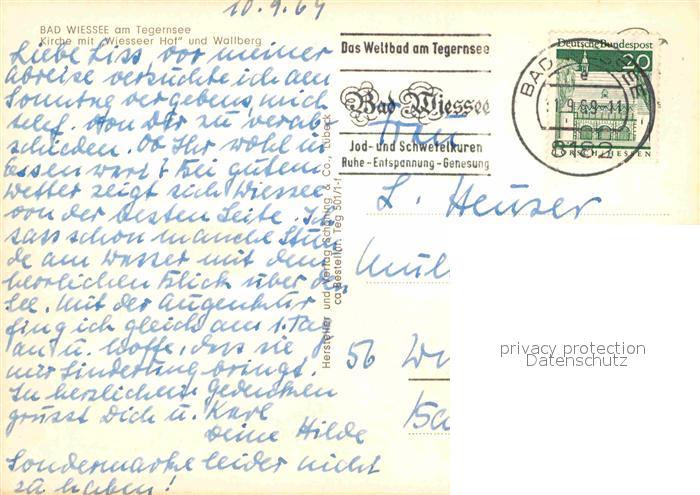 10.9.69
BAD WIESSEE am Tegernsee
Kirche mit "Wiesseer Hof" und Wallberg
Liebe Liss, vor meiner
Abreise versuchte ich am
Sonntag vergebens, mich
telef. von Dir zu verab-
schieden. Ob Ihr wohl in
Essen wart? Bei gutem
Wetter zeigt sich Wiessee
von der besten Seite. Ich
sass schon manche Stun-
de am Wasser mit dem
herrlichen Blick über den
See. Mit der Augenkur
fing ich gleich am 1. Tag
an u. hoffe, dass sie
mir Linderung bringt.
In herzlichem Gedenken
grüsst Dich u. Karl
Deine Hilde
Sondermarke leider nicht
zu haben!
Hersteller und Verlag Schöning & Co., Lübeck
Bestellnr. Teg 501/1-f
Das Weltbad am Tegernsee
Bad Wiessee
Jod- und Schwefelkuren
Ruhe - Entspannung - Genesung
Deutsche Bundespost
20
LORSCH/HESSEN
BAD WIESSEE
e
11.9.69-11
8182
Frau
L. Heuser
56
privacy protection
Datenschutz